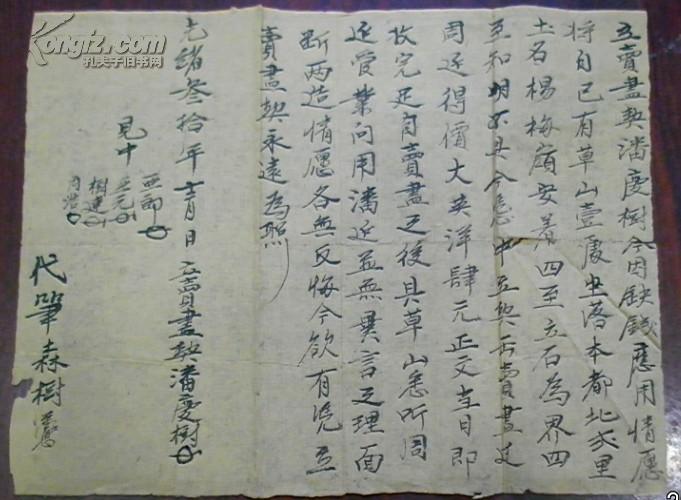 立賣盡契潘慶樹今因缺錢應用情愿
將自己有草山壹處坐落本都北求里
土名楊梅崗安着四至立石為界四
至知明不具今憑中立契出賣盡廷
周廷得價大英洋肆元正交當日即
收完足自賣盡之後具草山悉听周
廷管業问用潘廷並無異言之理面
断两造情愿各無反悔今欲有凭立
賣盡契永遠為照
光緒叁拾年十二月 日立賣盡契潘慶樹
見中
亚元
樹連
代筆森樹
Kongfz.com
孔夫子旧书网